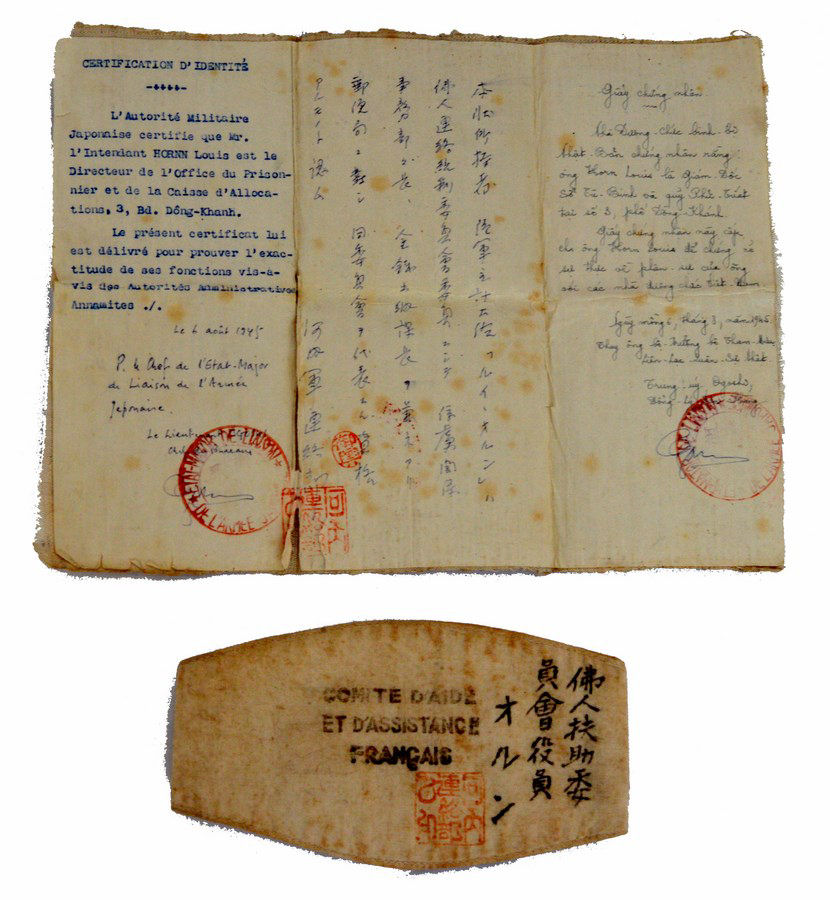 CERTIFICATION D'IDENTITÉ
L'Autorité Militaire
Japonaise certifie que Mr.
l'Intendant HORNN Louis est le
Directeur de l'Office du Prison-
nier et de la Caisse d'Alloca-
tions, 3, Bd. Dông-Khanh.
Le présent certificat lui
est délivré pour prouver l'exac-
titude de ses fonctions vis-à-
vis des Autorités Administratives
Annamites ./.
Le 6 août 1945
P. le Chef de l'Etat-Major
de Liaison de l'Armée
Japonaise.
Le Lieutenant
本状所持者 陸軍主計大佐 「ルイ・オルン」ハ
佛人連絡統制委員會委員ニシテ 俘虜関係
事務部
郵便局ニ対シ 同委員會ヲ代表スル資格
アルモノト認ム
河内軍連絡部
Giấy chứng nhận
Nhà Đương-Chức binh-bị
Nhật-Bản chứng nhận rằng
ông Horn Louis là Giám-Đốc
Sở Tù-Binh và quỹ Phụ-Cấp
tại số 3, phố Đồng-Khánh.
Giấy chứng nhận này cấp
cho ông Horn Louis để chứng rõ
sự thực về phận-sự của ông
với các nhà đương chức Việt-Nam.
Ngày mồng 6, tháng 8, năm 1945
Thay ông là Trưởng bộ Tham-Mưu
Liên-Lạc quân-đội Nhật.
Trung-uý
COMITE D'AIDE
ET D'ASSISTANCE
FRANÇAIS
佛人扶助委
員會役員
オルン
河内
連絡部